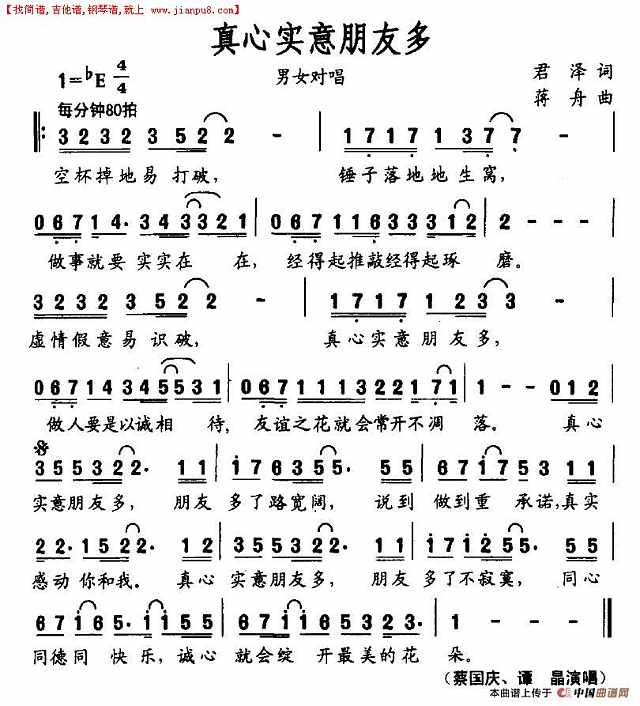 【找简谱,吉他谱,钢琴谱,就上 www.jianpu8.com】
真心实意朋友多
1=♭E 4/4
男女对唱
君泽词
蒋舟曲
每分钟80拍
3 2 3 2 3 5 2 2 - | 1 7 1 7 1 3 7 7 -
空杯掉地易打破， 锤子落地地生窝，
0 6 7 1 4· 3 4 3 3 3 2 1 | 0 6 7 1 1 6 3 3 3 3 1 2 | 2 - - -
做事就要实实在在，经得起推敲经得起琢磨。
3 2 3 2 3 5 2 2 - | 1 7 1 7 1 2 3 3 -
虚情假意易识破， 真心实意朋友多，
0 6 7 1 4 3 4 5 5 3 1 | 0 6 7 1 1 1 3 2 2 1 7 1 | 1 - - 0 1 2
做人要是以诚相待，友谊之花就会常开不凋落。真心
3 5 5 3 2 2· 1 1 | 1 7 6 3 5 5· 5 5 | 6 7 1 7 5 3 1 1
实意朋友多， 朋友多了路宽阔， 说到做到重承诺,真实
2 2· 1 5 2 2· 1 1 | 3 5 5 3 2 2· 1 1 | 1 7 1 2 5 5· 5 5
感动你和我。真心实意朋友多， 朋友多了不寂寞，同心
6 7 1 6 5· 1 1 5 | 6 7 1 6 5 3 5 2 3 2· | 1 - - -
同德同快乐，诚心就会绽开最美的花朵。
（蔡国庆、谭晶演唱）
本曲谱上传于 中国曲谱网